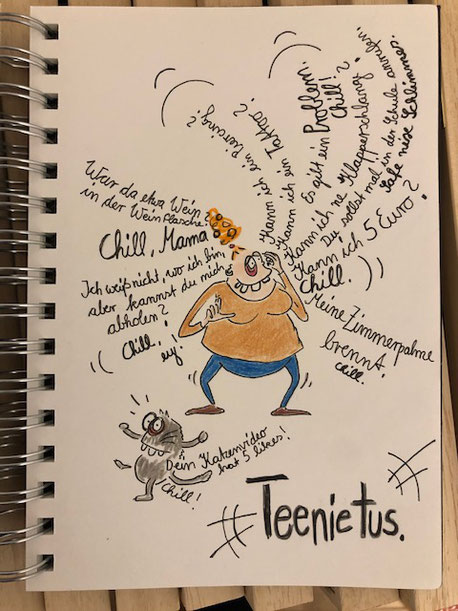 War da etwa Wein
in der Weinflasche?
Chill, Mama
Ich weiß nicht, wo ich bin,
aber kannst du mich
abholen?
Chill,
ey!
Kann ich ein Piercing?
Kann ich ein Tattoo?
Es gibt ein Problem.
Chill!
Kann ich ne Klapperschlang?
Du sollst mal in der Schule anrufen.
Safe Schlimmes.
Kann ich 5 Euro?
Chill.
Meine Zimmerpalme
brennt.
chill.
Dein Katzenvideo
hat 5 likes!
Chill!
#Teenietus.